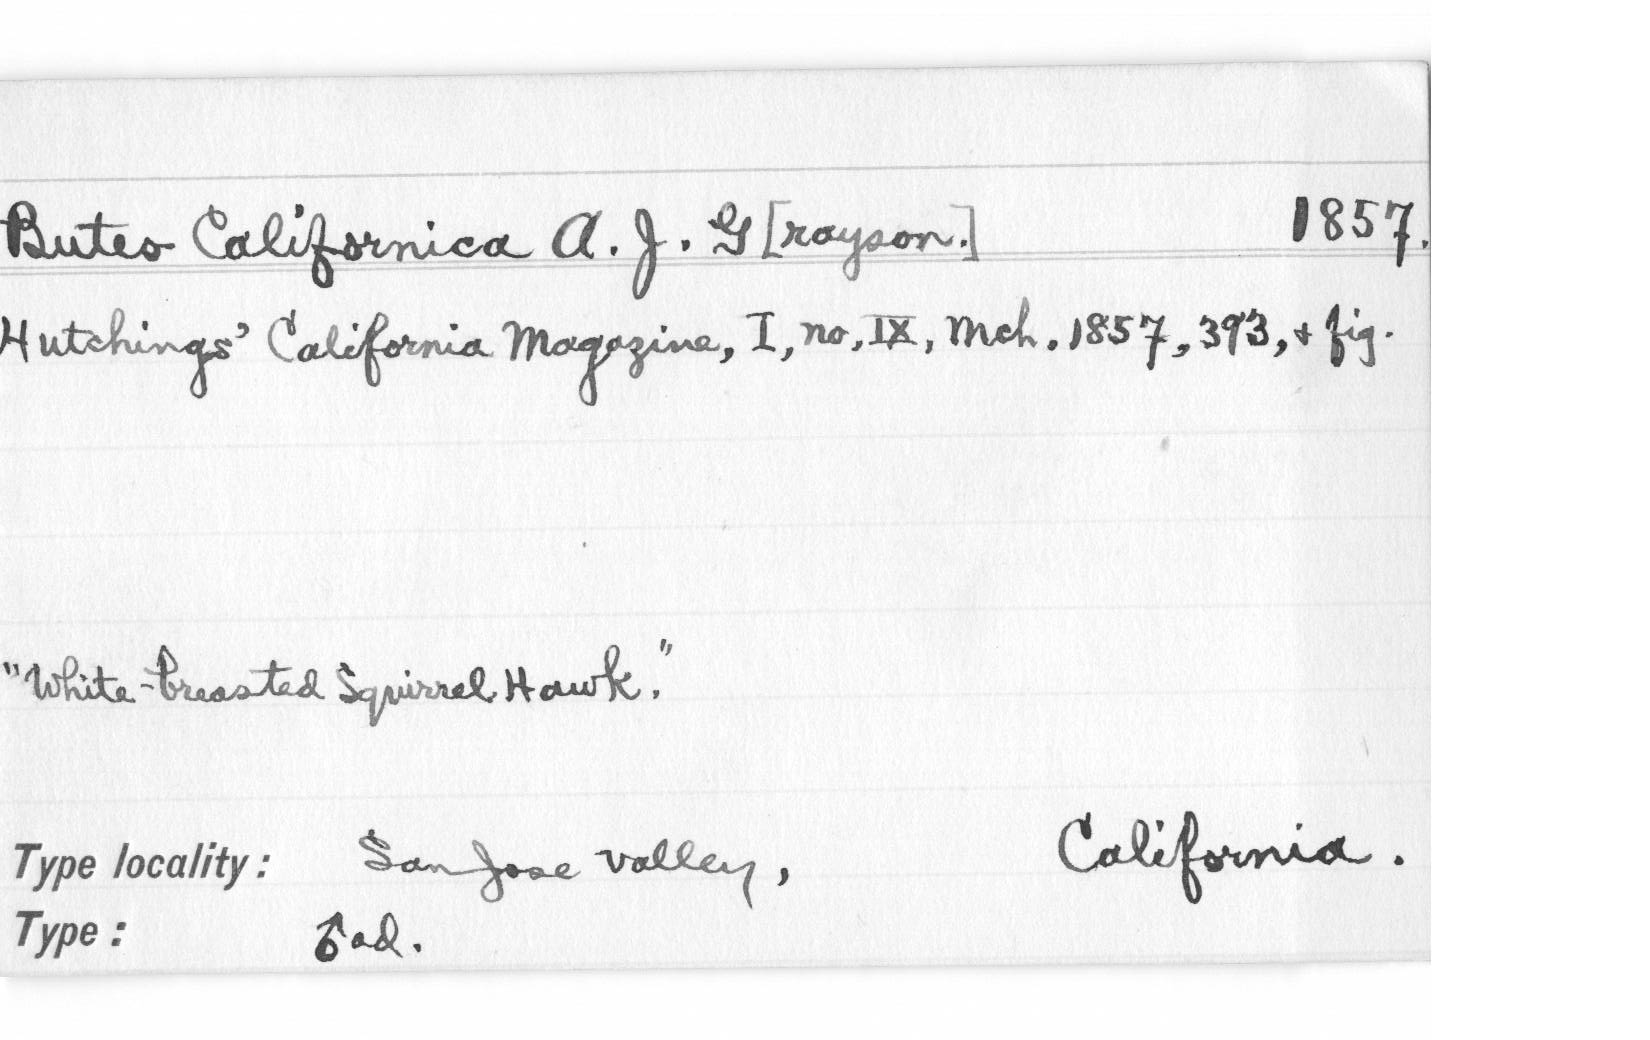 Buteo Californica A. J. G[rayson.] 1857.
Hutchings' California Magazine, I, no. IX, Mch. 1857, 393, + fig.
"White-breasted Squirrel Hawk."
Type locality: San Jose valley, California.
Type: ♂ ad.